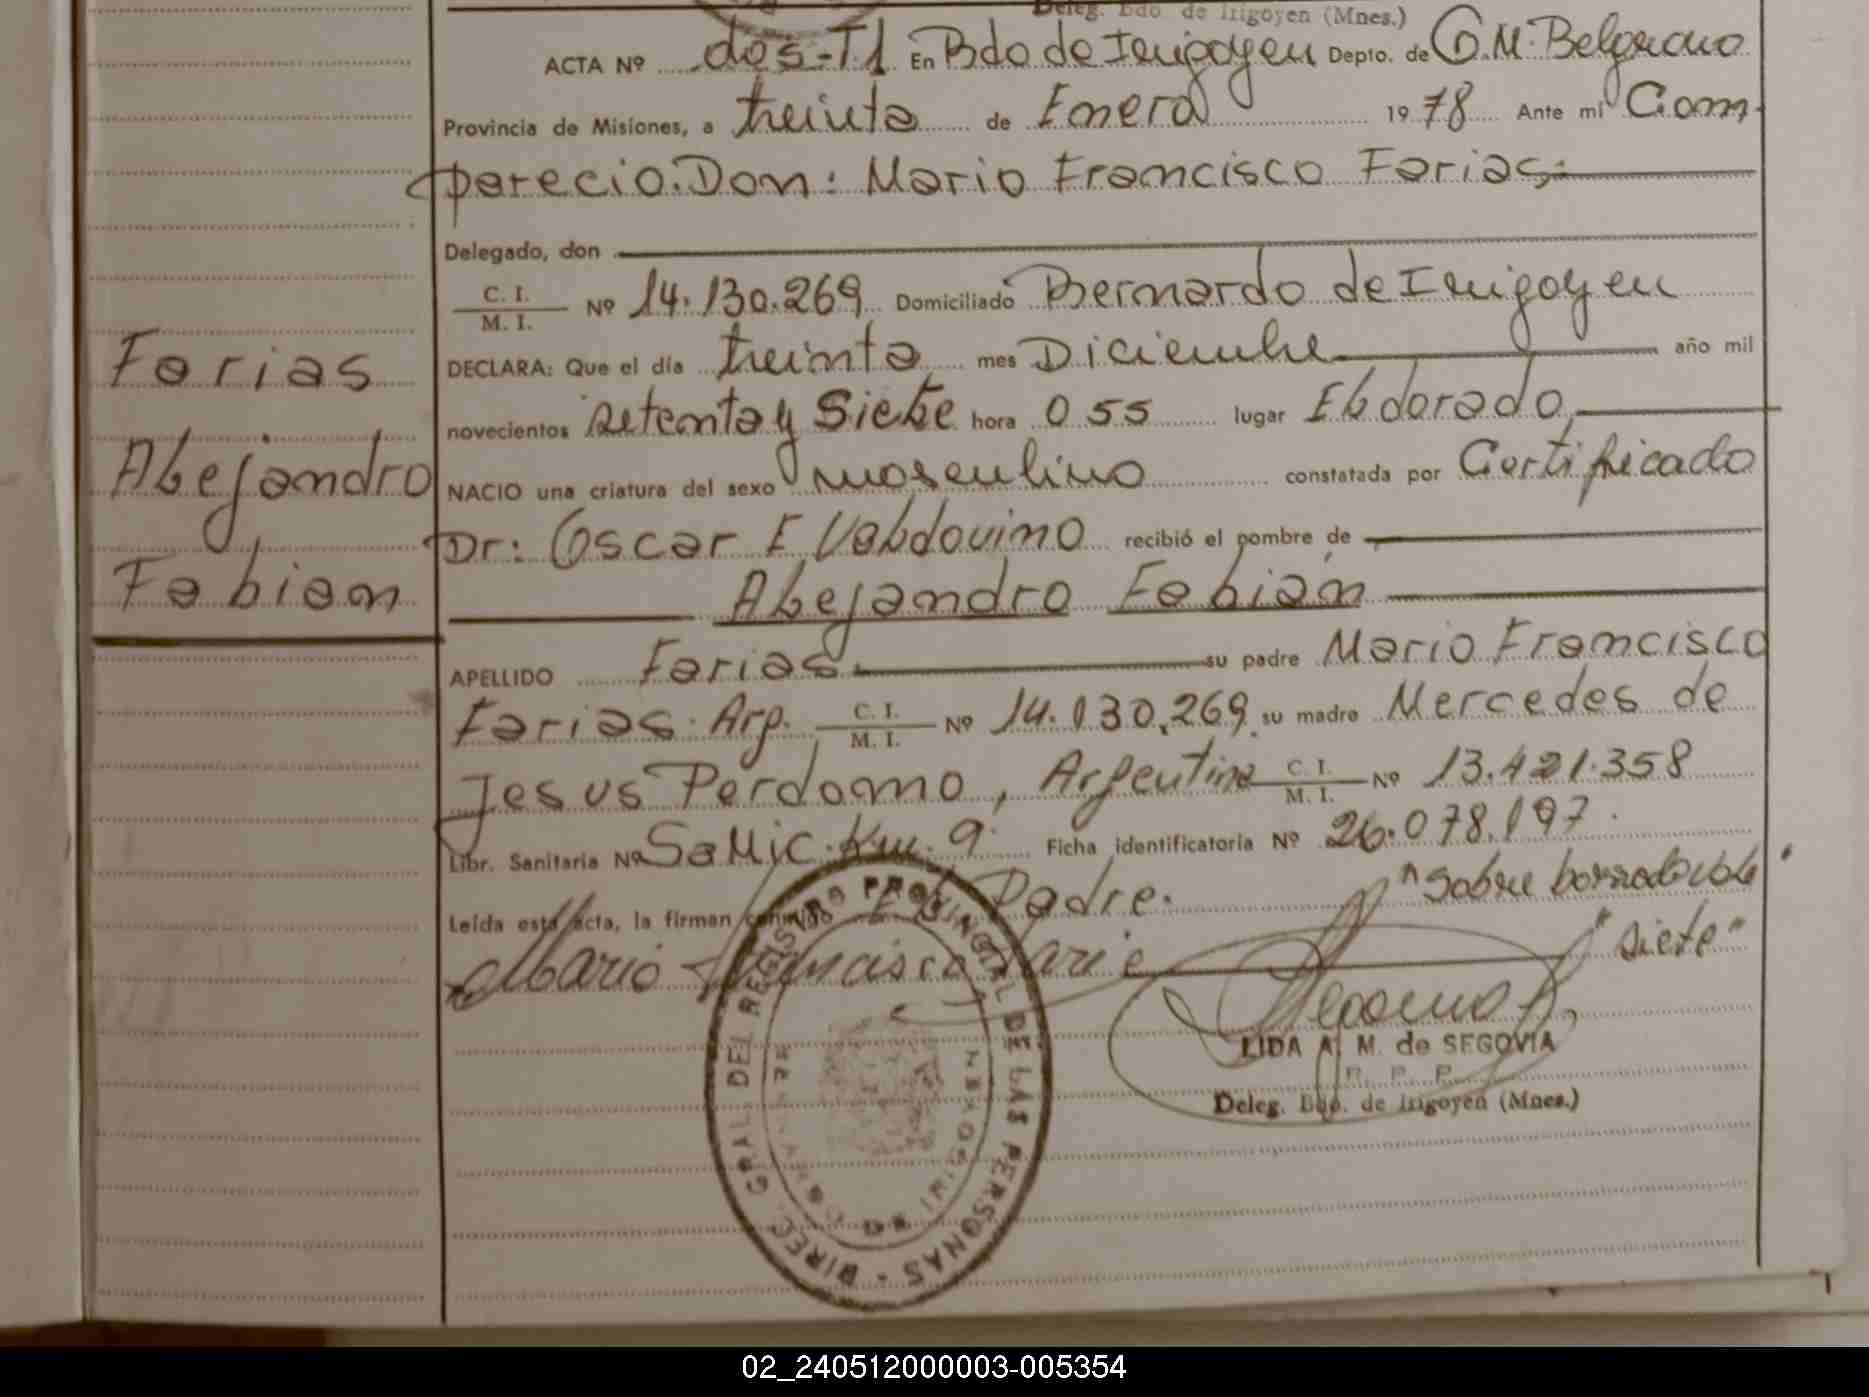 Deleg. Bdo. de Irigoyen (Mnes.)
ACTA Nº dos-T1 En Bdo de Irigoyen Depto. de G.M. Belgrano
Provincia de Misiones, a treinta de Enero 1978 Ante mi Com
parecio. Don: Mario Francisco Farias
Delegado, don
C. I.
M. I. Nº 14.130.269 Domiciliado Bernardo de Irigoyen
Farias
DECLARA: Que el día treinta mes Diciembre año mil
novecientos setenta y siete hora 0 55 lugar Eldorado
Alejandro
NACIO una criatura del sexo masculino constatada por Certificado
Dr: Oscar E Valdovino recibió el nombre de
Fabian
Alejandro Fabián
APELLIDO Farias su padre Mario Francisco
Farias. Arg. C. I. M. I. Nº 14.130.269 su madre Mercedes de
Jesus Perdomo, Argentina C. I. M. I. Nº 13.421.358
Libr. Sanitaria Nº SaMic. Km. 9. Ficha identificatoria Nº 26.078.197.
Leída esta acta, la firman conmigo El Padre. "Sobre borrado vale
"siete"
Mario Francisco Farie
LIDA A. M. de SEGOVIA
R. P. P.
Deleg. Bdo. de Irigoyen (Mnes.)
DIREC. GRAL. DEL REGISTRO PROVINCIAL DE LAS PERSONAS
02_240512000003-005354